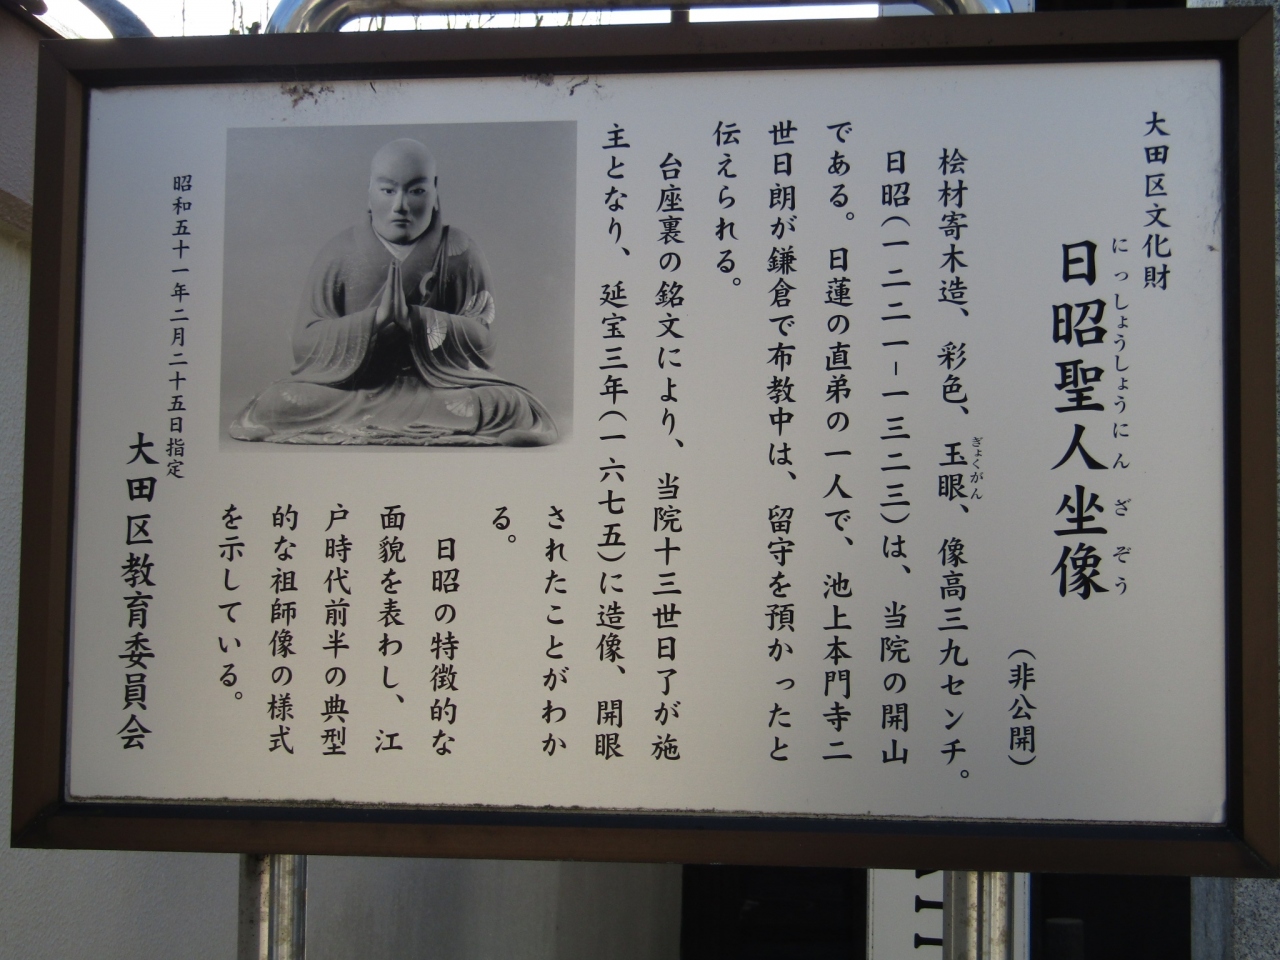 大田区文化財
にっしょうしょうにんざぞう
日昭聖人坐像
（非公開）
桧材寄木造、彩色、玉眼、像高三九センチ。
ぎょくがん
日昭（一二二一−一三二三）は、当院の開山
である。日蓮の直弟の一人で、池上本門寺二
世日朗が鎌倉で布教中は、留守を預かったと
伝えられる。
台座裏の銘文により、当院十三世日了が施
主となり、延宝三年（一六七五）に造像、開眼
されたことがわか
る。
日昭の特徴的な
面貌を表わし、江
戸時代前半の典型
的な祖師像の様式
を示している。
昭和五十一年二月二十五日指定
大田区教育委員会